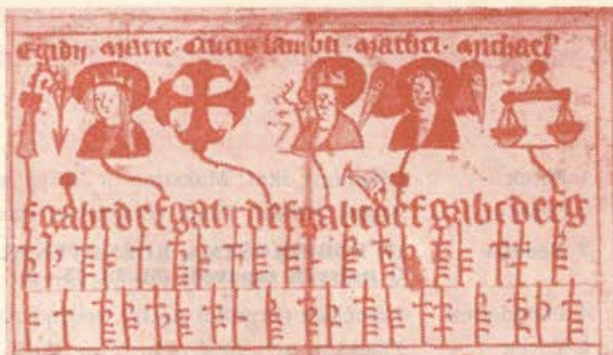 Egidij Marie Crucis lampti · Mathei · Michael
fgabcdefgabcdefgabcdefgabcdefg